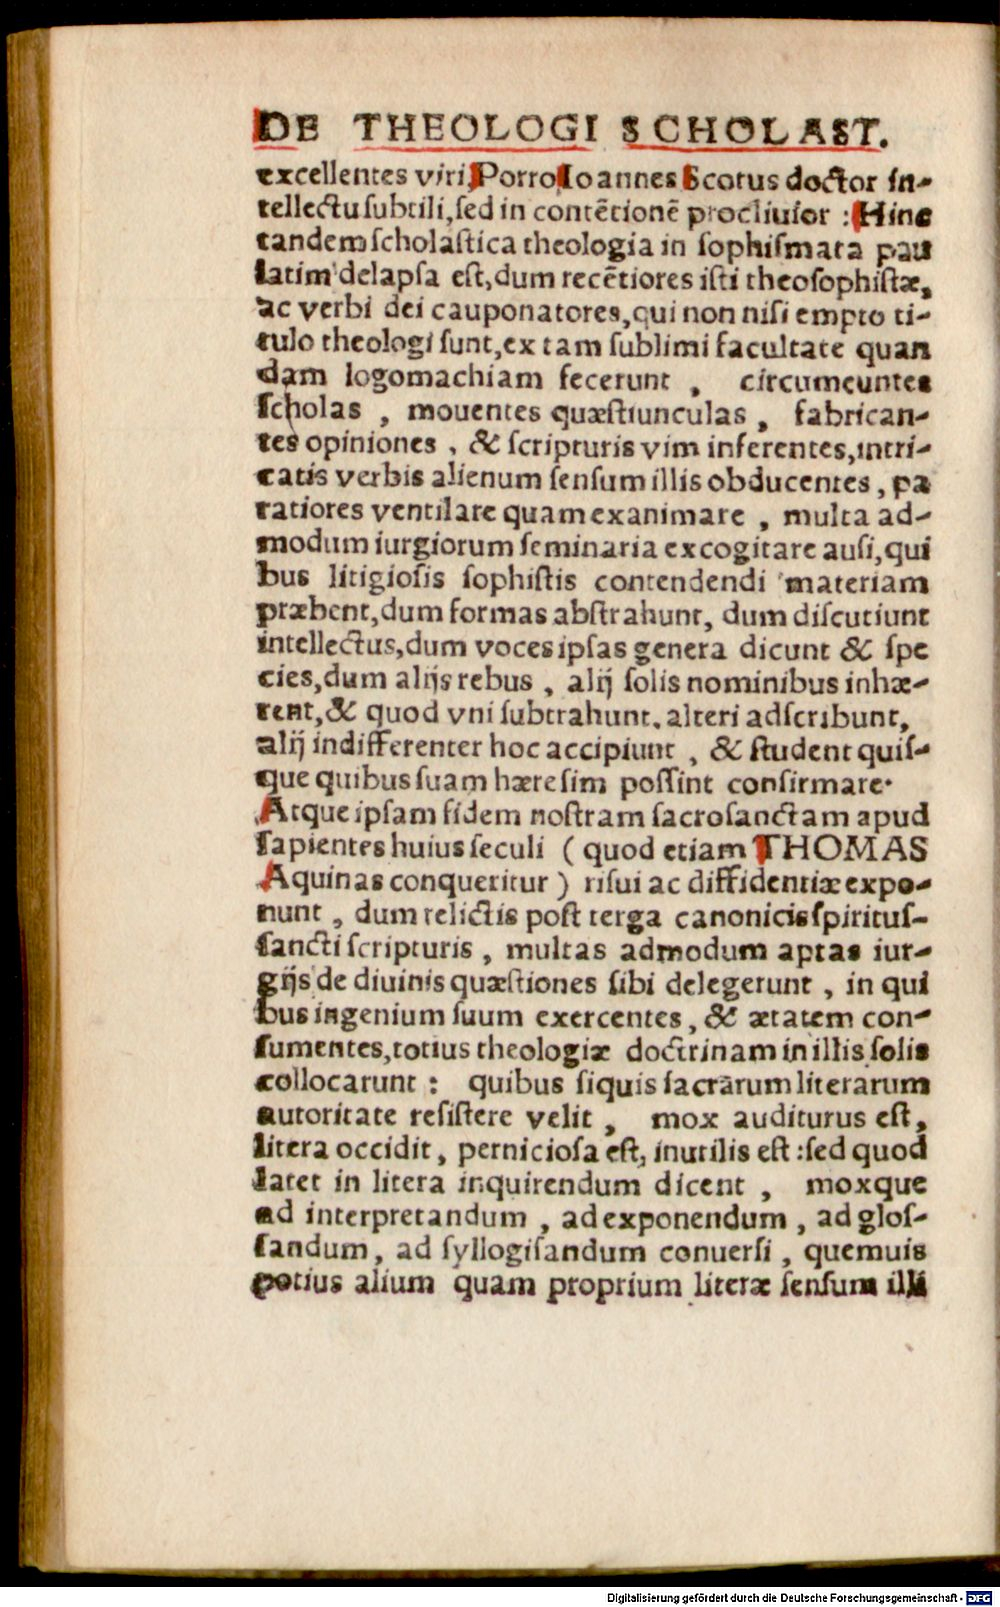 DE THEOLOGI SCHOLAST.
excellentes viri, Porro Ioannes Scotus doctor in-
tellectu subtili, sed in contētionē procliuior : Hinc
tandem scholastica theologia in sophismata pau
latim delapsa est, dum recētiores isti theosophistæ,
ac verbi dei cauponatores, qui non nisi empto ti-
tulo theologi sunt, ex tam sublimi facultate quan
dam logomachiam fecerunt , circumeuntes
scholas , mouentes quæstiunculas , fabrican-
tes opiniones , & scripturis vim inferentes, intri-
catis verbis alienum sensum illis obducentes , pa
ratiores ventilare quam exanimare , multa ad-
modum iurgiorum seminaria excogitare ausi, qui
bus litigiosis sophistis contendendi materiam
præbent, dum formas abstrahunt, dum discutiunt
intellectus, dum voces ipsas genera dicunt & spe
cies, dum alijs rebus , alij solis nominibus inhæ-
rent, & quod vni subtrahunt, alteri adscribunt,
alij indifferenter hoc accipiunt , & student quis-
que quibus suam hæresim possint confirmare.
Atque ipsam fidem nostram sacrosanctam apud
sapientes huius seculi ( quod etiam THOMAS
Aquinas conqueritur ) risui ac diffidentiæ expo-
nunt , dum relictis post terga canonicis spiritus-
sancti scripturis , multas admodum aptas iur-
gijs de diuinis quæstiones sibi delegerunt , in qui
bus ingenium suum exercentes , & ætatem con-
sumentes, totius theologiæ doctrinam in illis solis
collocarunt : quibus siquis sacrarum literarum
autoritate resistere velit , mox auditurus est,
litera occidit, perniciosa est, inutilis est : sed quod
latet in litera inquirendum dicent , moxque
ad interpretandum , ad exponendum , ad glos-
sandum , ad syllogisandum conuersi , quemuis
potius alium quam proprium literæ sensum illi
Digitalisierung gefördert durch die Deutsche Forschungsgemeinschaft - DFG